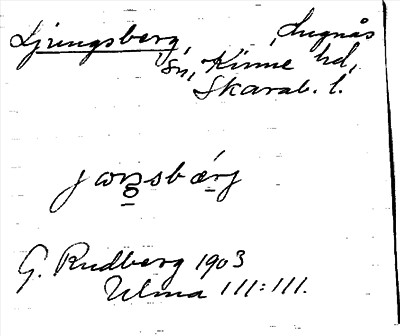 Ljungsberg, Lugnås
sn, Kinne hd,
Skarab. l.
G. Rudberg 1903
Ulma 111:111.